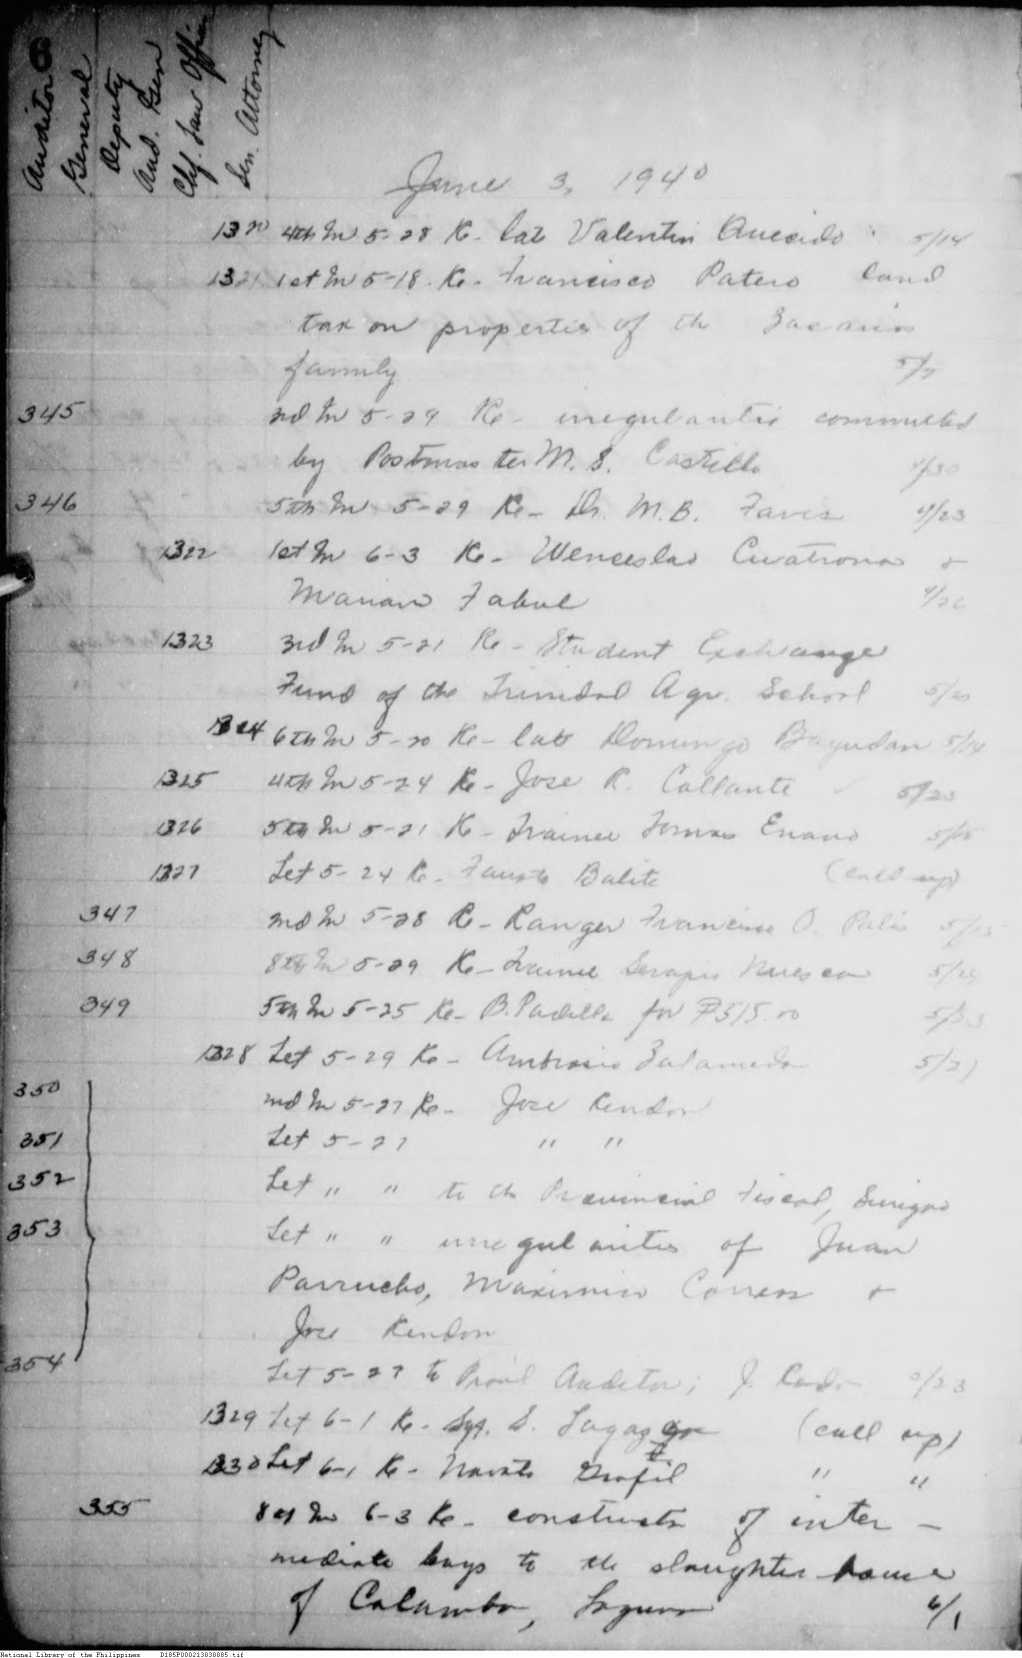 Auditor
General
Deputy
Aud. Gen
Chf. Law Officer
Gen. Attorney
June 3, 1940
1320 4th In 5-28 Re- late Valentin 5/14
1321 1st In 5-18. Re- Francisco Patero land
tax on properties of the
family 5/7
345 2nd In 5-29 Re- irregularities committed
by Postmaster M. S. Castillo 4/30
346 5th In 5-29 Re- Dr. M.B. Faves 4/23
1322 1st In 6-3 Re- Wenceslao Cuatrona &
Mariano Fabul 4/22
1323 3rd In 5-21 Re- Student Exchange
Fund of the Trinidad Agr. School
1324 6th In 5-20 Re- late Domingo Bayudan 5/14
1325 4th In 5-24 Re- Jose R. Collante 5/23
1326 5th In 5-21 Re- Trainee Tomas Enano
1327 Let 5-24 Re- Fausto Balite (call up)
347 2nd In 5-28 Re- Ranger Francisco O.
348 8th In 5-29 Re- Trainee Serapio
349 5th In 5-25 Re- B. Padilla for ₱515.00 5/23
1328 Let 5-29 Re- Ambrosio
350 2nd In 5-27 Re- Jose Rendon
351 Let 5-27 " "
352 Let " " to the Provincial Fiscal, Surigao
353 Let " " irregularities of Juan
Parrucho, Maximino Correos &
Jose Rendon
354 Let 5-27 to Prov'l Auditor; J.
1329 Let 6-1 Re- Sgt. S. (call up)
1330 Let 6-1 Re- Grafil " "
355 8th In 6-3 Re- constructn of inter-
mediate bays to the slaughter house
of Calamba, Laguna 6/1
National Library of the Philippines D185P000213030085.tif